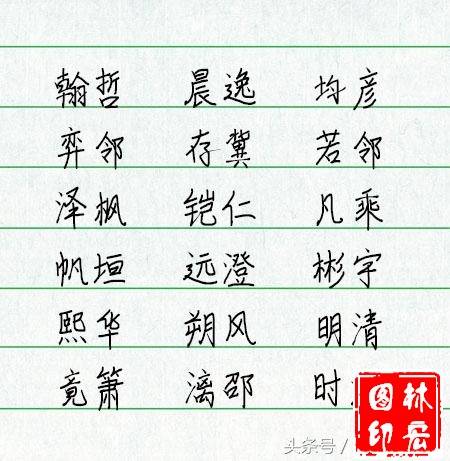 翰哲 晨逸 均彦
弈邻 存冀 若邻
泽枫 铠仁 凡乘
帆垣 远澄 彬宇
熙华 朔风 明清
竟箫 漓邵 时
林宏印图
头条号